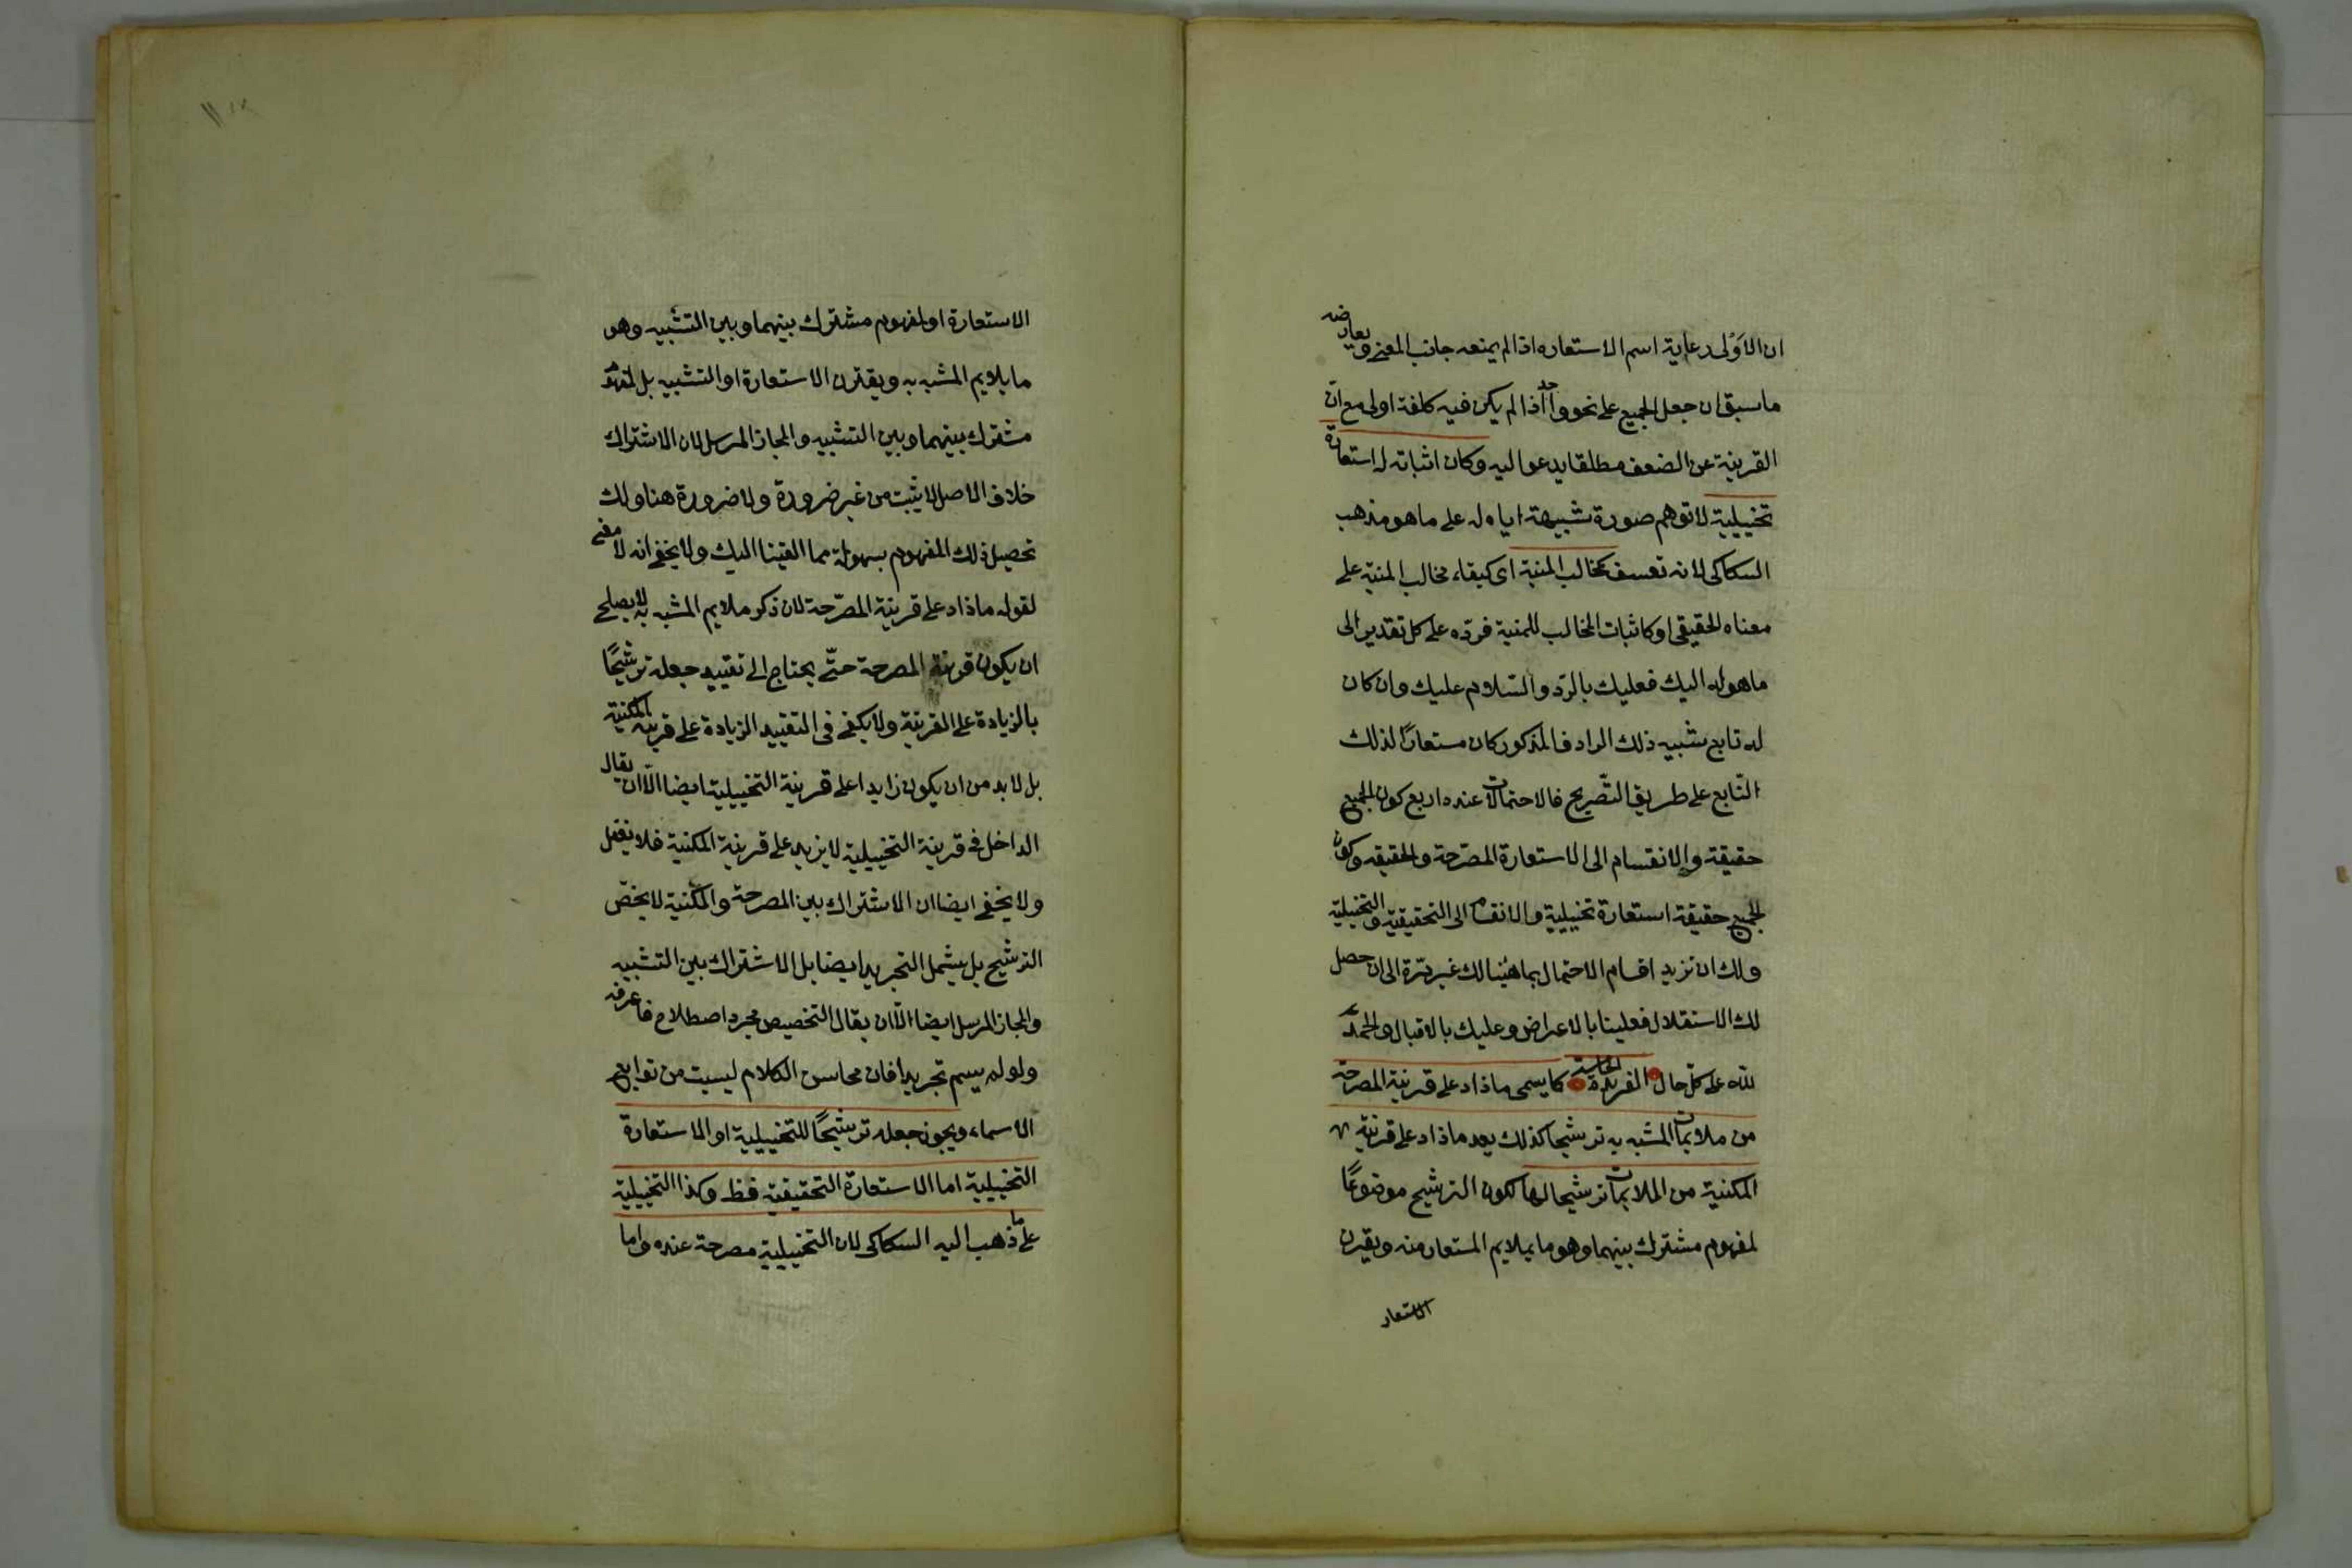 ان الاَوْلى رعاية اسم الاستعاره اذا لم يمنعه جانب المعنى ويعارضه
ما سبق ان جعل الجميع على نحو واحد اذا لم يكن فيه كلفة اولى مع انّ
القرينة عن الضعف مطلقا يدعو اليه وكان اثباته له استعارة
تخييلية لا توهم صورة شبيهة اياه له على ما هو مذهب
السكاكى لانه تعسف كمخالب المنية اى كبقاء مخالب المنية على
معناه الحقيقى او كاثبات المخالب للمنية فردّه على كل تقدير الى
ما هو له اليك فعليك بالردّ والسّلام عليك وان كان
له تابع يشبيه ذلك الرادف المذكور كان مستعارًا لذلك
التّابع على طريق التّصريح فالاحتمالات عنده اربع كون الجميع
حقيقة والانقسام الى الاستعارة المصّرحة والحقيقه وكون
الجميع حقيقة استعارة تخييلية والانقسام الى التحقيقية والتخييلية
ولك ان تزيد اقسام الاحتمال بما هيّنا لك غير مرّة الى ان حصل
لك الاستقلال فعلينا بالاعراض وعليك بالاقبال والحمد
لله على كلّ حال الفريدة الخامسة كما يسمى ما زاد على قرينة المصرحة
من ملايمات المشبه به ترشيحا كذلك يعد ما زاد على قرينة
المكنية من الملايمات ترشيحا لها لكون الترشيح موضوعًا
لمفهوم مشترك بينهما وهو ما يلايم المستعار منه ويقترن
الاستعار
الاستعارة او لمفهوم مشترك بينهما وبين التشبيه وهو
ما يلايم المشبه به ويقترن الاستعارة او التشبيه بل لمفهوم
مشترك بينهما وبين التشبيه والمجاز المرسل لان الاشتراك
خلاف الاصل لا يثبت من غير ضرورة ولا ضرورة هنا ولك
تحصيل ذلك المفهوم بسهولة مما القينا اليك ولا يخفى انه لا معنى
لقوله ما زاد على قرينة المصّرحة لان ذكر ملايم المشبه به لا يصلح
ان يكون قرينة المصرحة حتّى يحتاج الى تقييد جعله ترشيحًا
بالزيادة على القرينة ولا يكفى فى التقييد الزيادة على قرينة المكنية
بل لا بد من ان يكون زايدا على قرينة التخييلية ايضا الّا ان يقال
الداخل فى قرينة التخييلية لا يزيد على قرينة المكنية فلا تغفل
ولا يخفى ايضا ان الاشتراك بين المصرحة والمكنية لا يخصّ
الترشيح بل يشمل التجريد ايضا بل الاشتراك بين التشبيه
والمجاز المرسل ايضا الّا ان يقال التخصيص مجرد اصطلاح فاعرفه
ولو لم يسم تجريدا فان محاسن الكلام ليست من توابع
الاسماء ويجوز جعله ترشيحًا للتخييلية او الاستعارة
التخييلية اما الاستعارة التحقيقية فظ وكذا التخييلية
على ما ذهب اليه السكاكى لان التخييلية مصرحة عنده واما